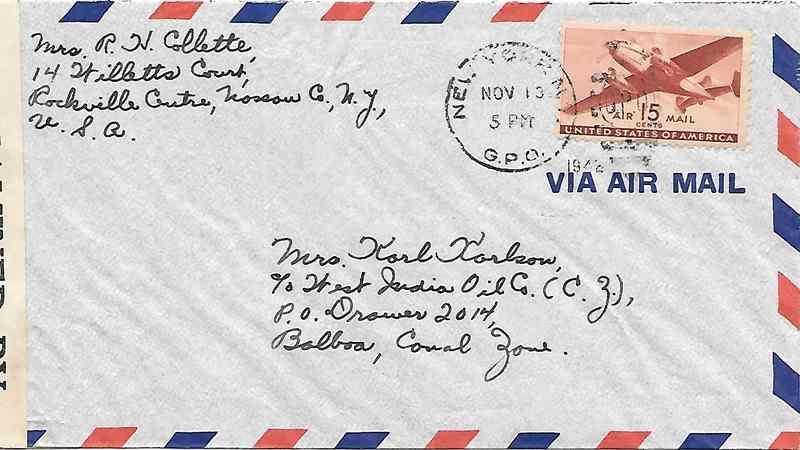 Mrs. R. H. Collette,
14 Willetts Court,
Rockville Centre, Nassau Co., N.Y.,
U. S. A.
NEW YORK, N.
NOV 13
5 PM
G.P.O.
1942
AIR 15 MAIL
CENTS
UNITED STATES OF AMERICA
VIA AIR MAIL
Mrs. Karl Karlson,
c/o West India Oil Co. (C. Z.),
P.O. Drawer 2014,
Balboa, Canal Zone.
BY